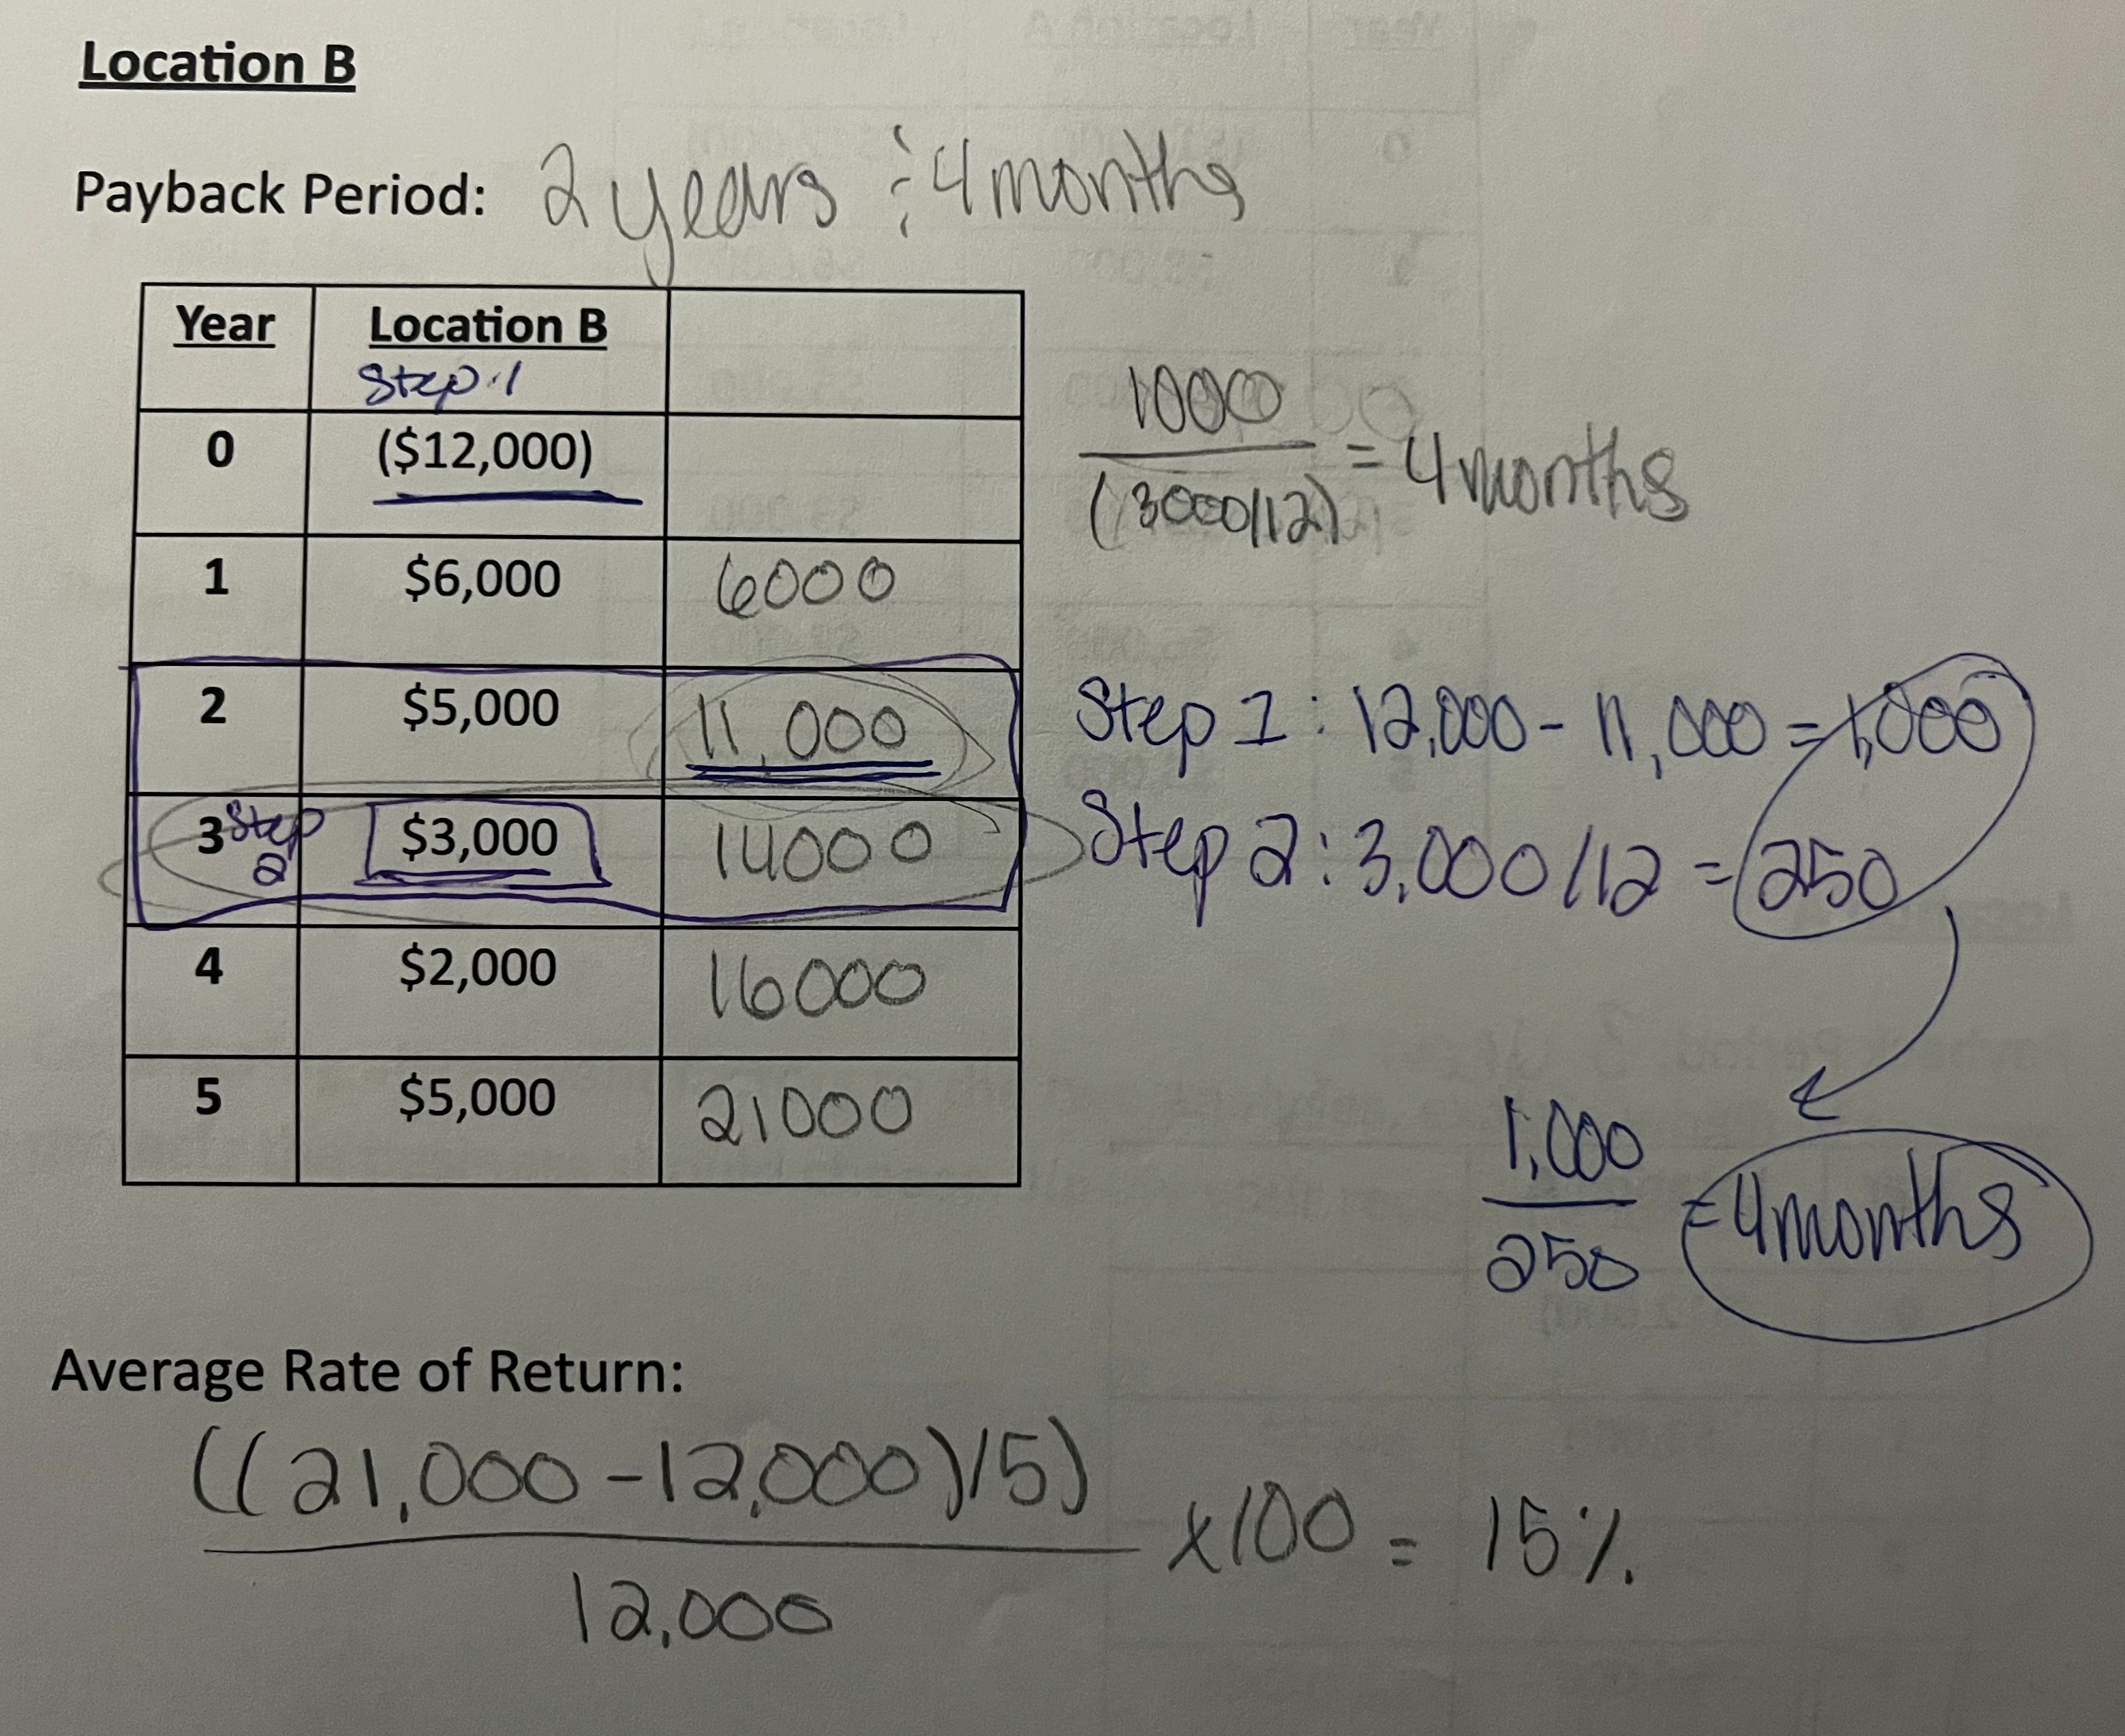 Location B
Payback Period: 2 years & 4 months
Year Location B
Step 1
0 ($12,000)
1 $6,000 6000
2 $5,000 11,000
3 Step 2 $3,000 14000
4 $2,000 16000
5 $5,000 21000
1000
(3000/12) = 4 months
Step 1: 12,000 - 11,000 = 1,000
Step 2: 3,000/12 = 250
1,000
250 = 4 months
Average Rate of Return:
((21,000 - 12,000)/5)
12,000
x100 = 15%